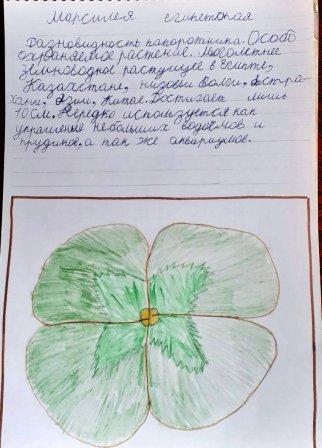 Марсилея египетская
Разновидность папоротника. Особо
охраняемое растение. Многолетнее
земноводное растущее в Египте,
Казахстане, низовьи Волги, Астра-
хани, Азии, Китае. Достигает лишь
10 см. Нередко используется как
украшение небольших водоёмов и
прудиков, а так же аквариумов.